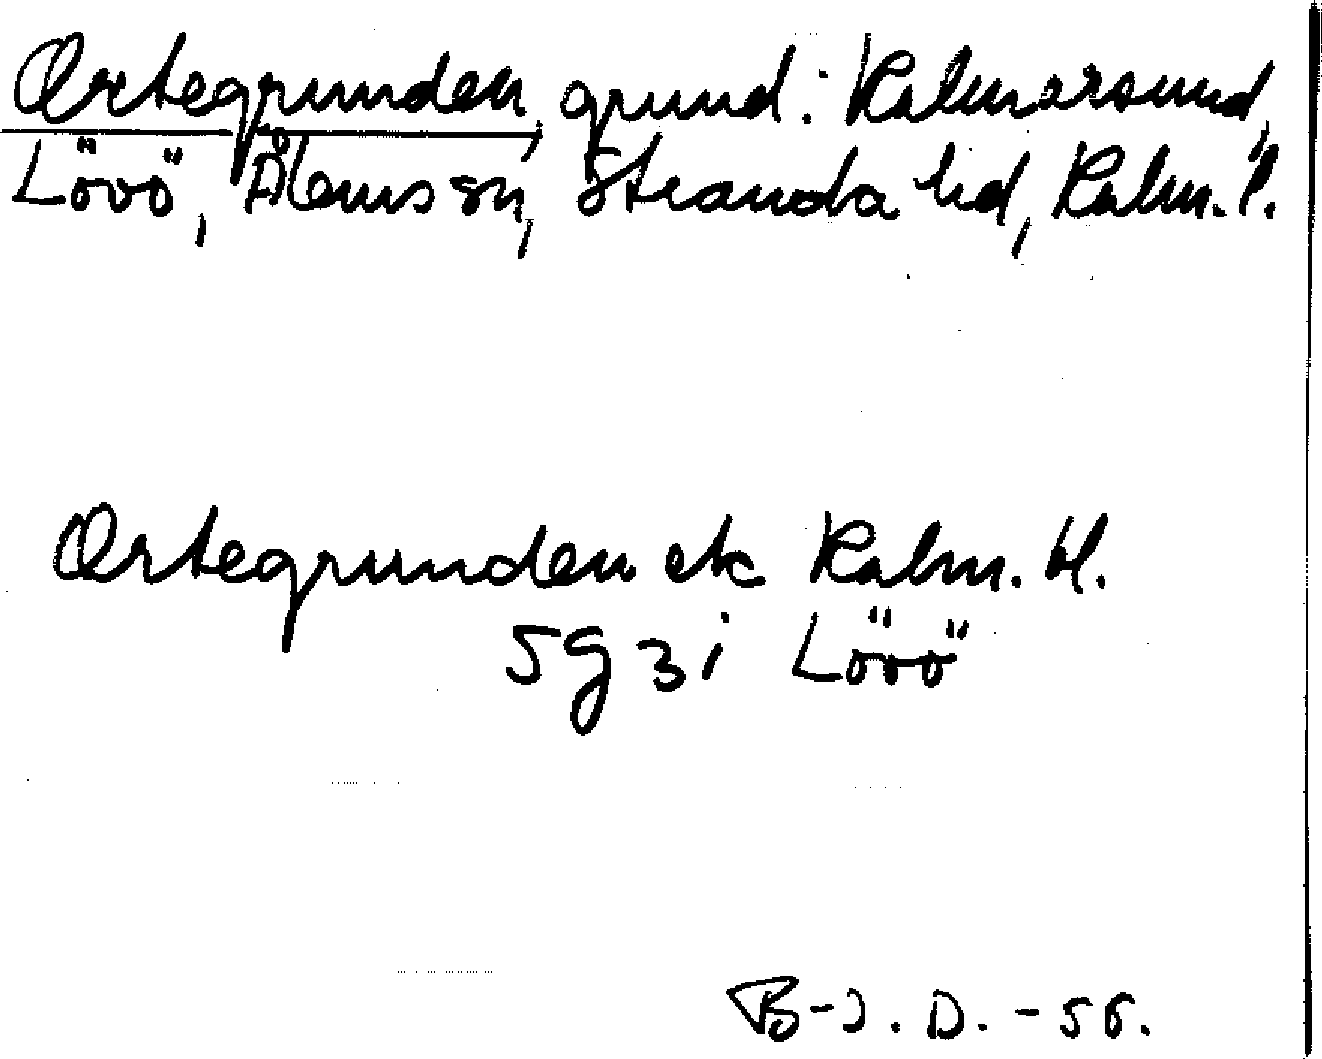 Ortegrunden, grund: Kalmarsund,
Lövö, Ålems sn, Stranda hd, Kalm. l.
Ortegrunden ek Kalm. H.
5g 3i Lövö
B-J. D. -56.